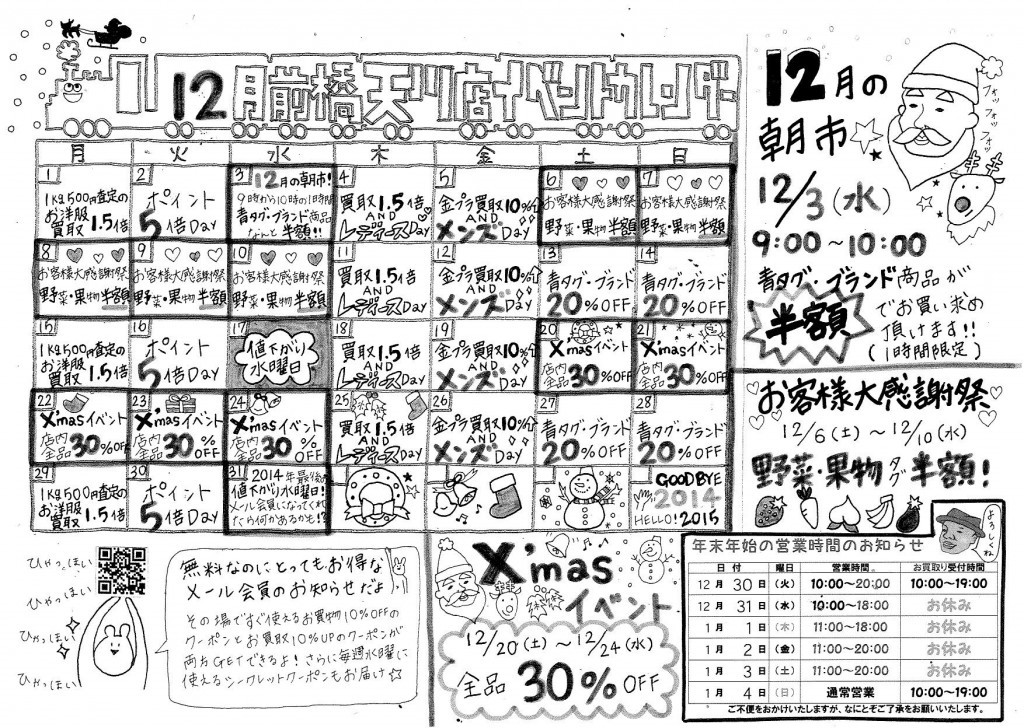 12月前橋天川宿イベントカレンダー
月 火 水 木 金 土 日
1
1kg500円査定の
お洋服
買取 1.5倍
2
ポイント
5倍Day
3
12月の朝市!
9時から10時の1時間
青タグ・ブランド商品
なんと半額!!
4
買取1.5倍
AND
レディースDay
5
金プラ買取10%
AND
メンズDay
6
お客様大感謝祭
野菜・果物半額
7
お客様大感謝祭
野菜・果物半額
8
お客様大感謝祭
野菜・果物半額
9
お客様大感謝祭
野菜・果物半額
10
お客様大感謝祭
野菜・果物半額
11
買取1.5倍
AND
レディースDay
12
金プラ買取10%
AND
メンズDay
13
青タグ・ブランド
20%OFF
14
青タグ・ブランド
20%OFF
15
1kg500円査定の
お洋服
買取 1.5倍
16
ポイント
5倍Day
17
値下がり
水曜日
18
買取1.5倍
AND
レディースDay
19
金プラ買取10%
AND
メンズDay
20
X'masイベント
店内
全品30%OFF
21
X'masイベント
店内
全品30%OFF
22
X'masイベント
店内
全品30%OFF
23
X'masイベント
店内
全品30%OFF
24
X'masイベント
店内
全品30%OFF
25
買取1.5倍
AND
レディースDay
26
金プラ買取10%
AND
メンズDay
27
青タグ・ブランド
20%OFF
28
青タグ・ブランド
20%OFF
29
1kg500円査定の
お洋服
買取 1.5倍
30
ポイント
5倍Day
31
2014年最後の
値下がり水曜日!
メール会員になってくれ
たら何かあるかも!?
GOODBYE
2014
HELLO!2015
12月の
朝市
フォッ
フォッ
フォッ
12/3(水)
9:00~10:00
青タグ・ブランド商品が
半額
でお買い求め
頂けます!!
(1時間限定)
お客様大感謝祭
12/6(土)~12/10(水)
野菜・果物タグ半額!
ひゃっほい
ひゃっほい
ひゃっほい
ひゃっほい
無料なのにとってもお得な
メール会員のお知らせだよ
その場ですぐ使えるお買物10%OFFの
クーポンとお買取10%UPのクーポンが
両方GETできるよ!さらに毎週水曜に
使えるシークレットクーポンもお届け☆
X'mas
イベント
12/20(土)~12/24(水)
全品30%OFF
よろしくね
年末年始の営業時間のお知らせ
日付 曜日 営業時間 お買取り受付時間
12月30日(火) 10:00~20:00 10:00~19:00
12月31日(水) 10:00~18:00 お休み
1月1日(木) 11:00~18:00 お休み
1月2日(金) 11:00~20:00 お休み
1月3日(土) 11:00~20:00 お休み
1月4日(日) 通常営業 10:00~19:00
ご不便をおかけいたしますが、なにとぞご了承をお願いいたします。